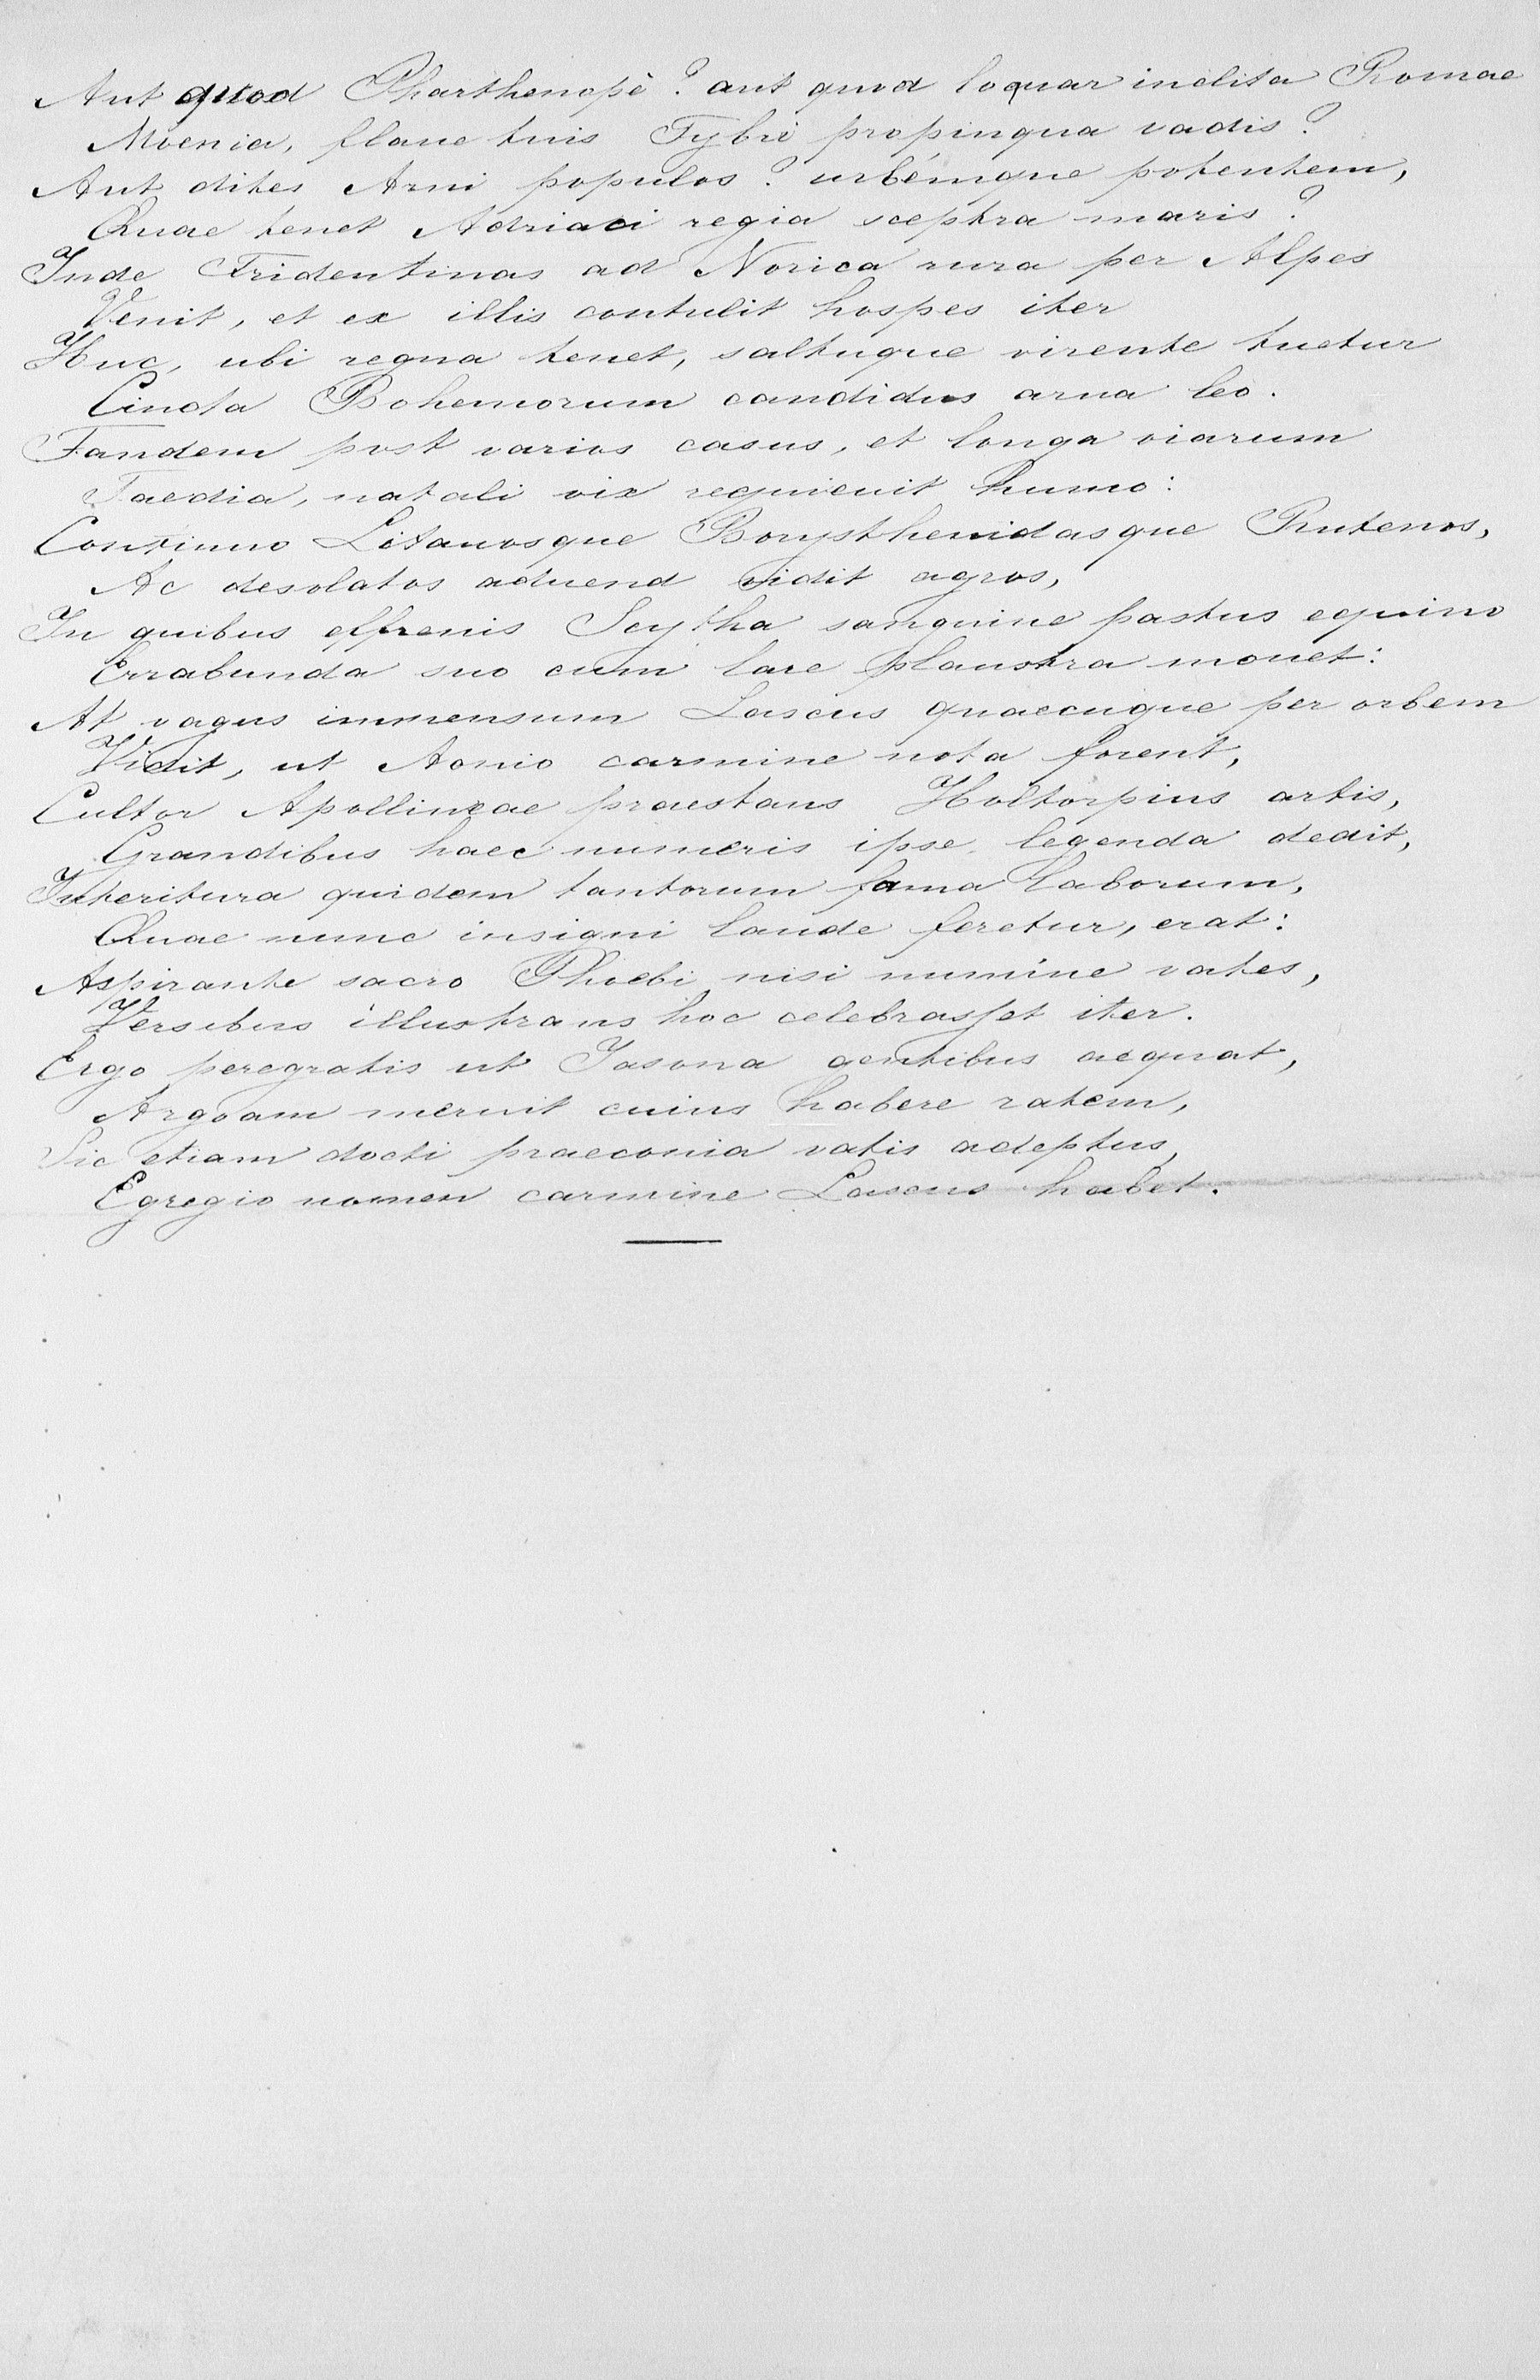 Aut quod Pharthenopè? aut quod loquar inclita Romae
Moenia, flaue tuis Tybri propinqua vadis?
Aut dites Arni populos? urbémque potentem,
Quae tenet Adriaci regia sceptra maris?
Inde Tridentinas ad Norica rura per Alpes
Venit, et ex illis contulit hospes iter
Huc, ubi regna tenet, saltuque virente tuetur
Cincta Bohemorum candidus arua leo.
Tandem post varios casus, et longa viarum
Taedia, natali vix requieuit humo:
Continuo Litauosque Borysthenidasque Rutenos,
Ac desolatos aduena vidit agros,
In quibus effrenis Scytha sanguine pastus equino
Errabunda suo cum lare plaustra mouet:
At vagus immensum Lascus quaecuque per orbem
Vidit, ut Aonio carmine nota forent,
Cultor Apollineae praestans Holtorpius artis,
Grandibus haec numeris ipse legenda dedit,
Interitura quidem tantorum fama laborum,
Quae nunc insigni laude feretur, erat:
Aspirante sacro Phoebi nisi numine vates,
Versibus illustrans hoc celebrasset iter.
Ergo peregratis ut Jasona gentibus aequat,
Argoam meruit cuius habere ratem,
Sic etiam docti praeconia vatis adeptus,
Egregio nomen carmine Lascus habet.